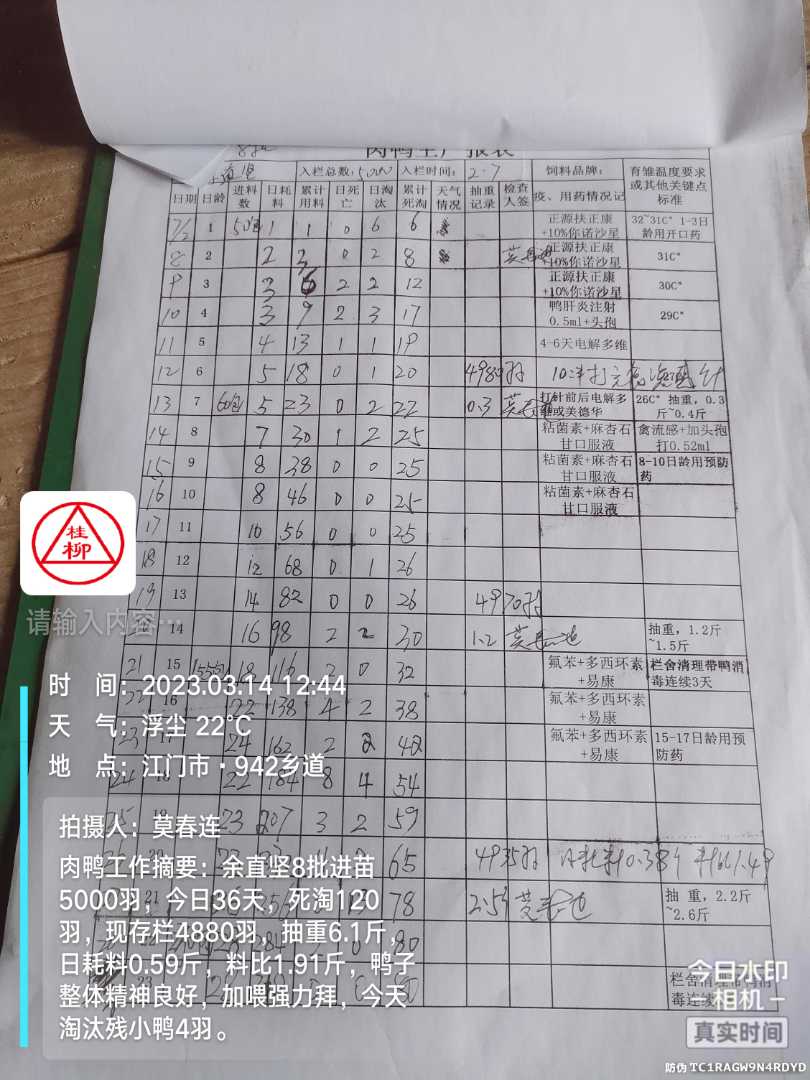 肉鸭生产报表
入栏总数:5000 入栏时间: 2.7 饲料品牌: 育雏温度要求或其他关键点标准
日期 日龄 进料数 日耗料 累计用料 日死亡 日淘汰 累计死淘 天气情况 抽重记录 检查人签 疫、用药情况记
7/2 1 50包 1 1 0 6 6 正源扶正康+10%你诺沙星 32~31C° 1-3日龄用开口药
8 2 2 3 0 2 8 正源扶正康+10%你诺沙星 31C°
9 3 3 6 2 2 12 正源扶正康+10%你诺沙星 30C°
10 4 3 9 2 3 17 鸭肝炎注射0.5ml+头孢 29C°
11 5 4 13 1 1 19 4-6天电解多维
12 6 5 18 0 1 20 4980羽
13 7 60包 5 23 0 2 22 0.3 打针前后电解多维或美德华 26C° 抽重，0.3斤~0.4斤
14 8 7 30 1 2 25 粘菌素+麻杏石甘口服液 禽流感+加头孢打0.52ml
15 9 8 38 0 0 25 粘菌素+麻杏石甘口服液 8-10日龄用预防药
16 10 8 46 0 0 25 粘菌素+麻杏石甘口服液
17 11 10 56 0 0 25
18 12 12 68 0 1 26
19 13 14 82 0 0 26 4970羽
14 16 98 2 2 30 1.2 抽重，1.2斤~1.5斤
21 15 155包 18 116 2 0 32 氟苯+多西环素+易康 栏舍清理带鸭消毒连续3天
22 16 22 138 4 2 38 氟苯+多西环素+易康
23 17 24 162 2 2 42 氟苯+多西环素+易康 15-17日龄用预防药
24 18 22 184 8 4 54
25 19 23 207 3 2 59
65 4935羽 日耗料0.38斤 料比1.49
21 78 2.5斤 莫春连 抽重，2.2斤~2.6斤
80
23 栏舍清理带鸭消毒连续
桂柳
请输入内容…
时 间：2023.03.14 12:44
天 气：浮尘 22°C
地 点：江门市·942乡道
拍摄人：莫春连
肉鸭工作摘要：余直坚8批进苗
5000羽，今日36天，死淘120
羽，现存栏4880羽，抽重6.1斤，
日耗料0.59斤，料比1.91斤，鸭子
整体精神良好，加喂强力拜，今天
淘汰残小鸭4羽。
今日水印
相机
真实时间
防伪 TC1RAGW9N4RDYD